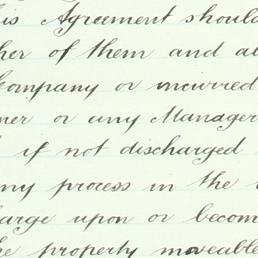 his Agreement should
her of them and al
Company or incurred
ner or any Manager
if not discharged
ny process in the
harge upon or becom
he property moveable